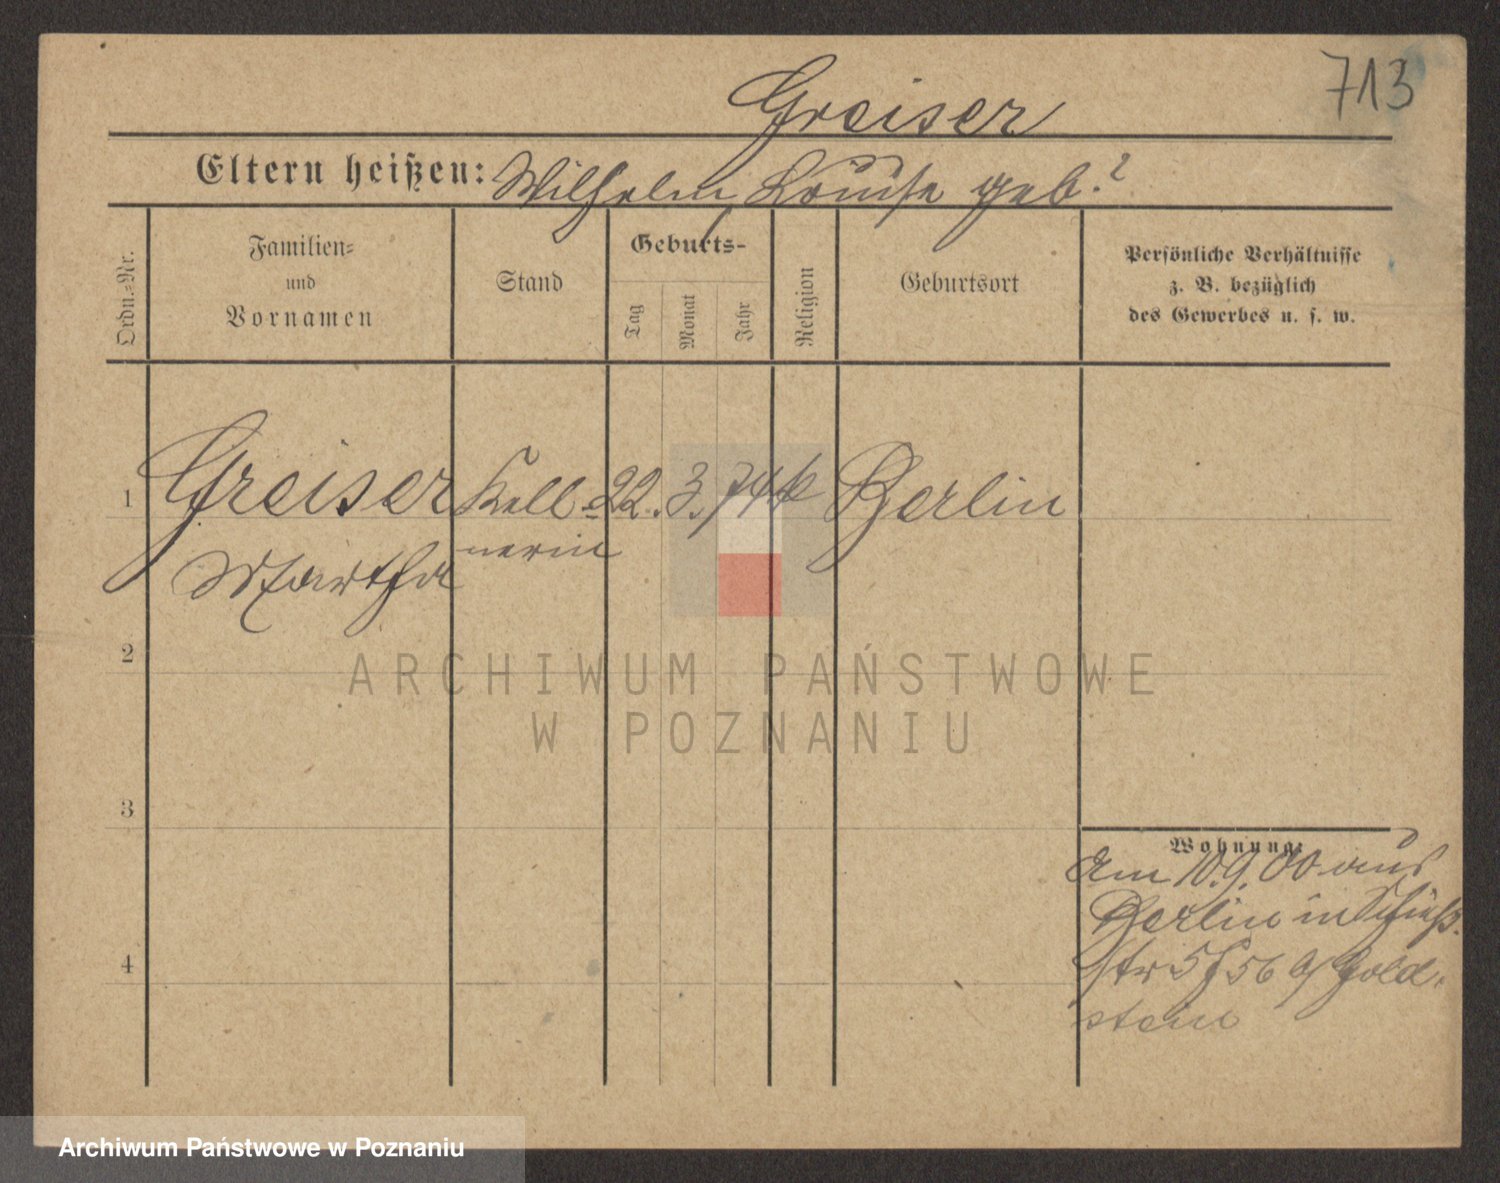 713
Greiser
Eltern heißen: Wilhelm Louise geb. ?
Ordn.-Nr.
Familien-
und
Vornamen
Stand
Geburts-
Tag
Monat
Jahr
Religion
Geburtsort
Persönliche Verhältnisse
z. B. bezüglich
des Gewerbes u. s. w.
1 Greiser Kell- 22. 3. 74 k Berlin
Martha nerin
2
3
4
Wohnung:
Am 10.9.00 aus
Berlin in Schieß
str 5 b/ Gold-
stein
ARCHIWUM PAŃSTWOWE
W POZNANIU
Archiwum Państwowe w Poznaniu